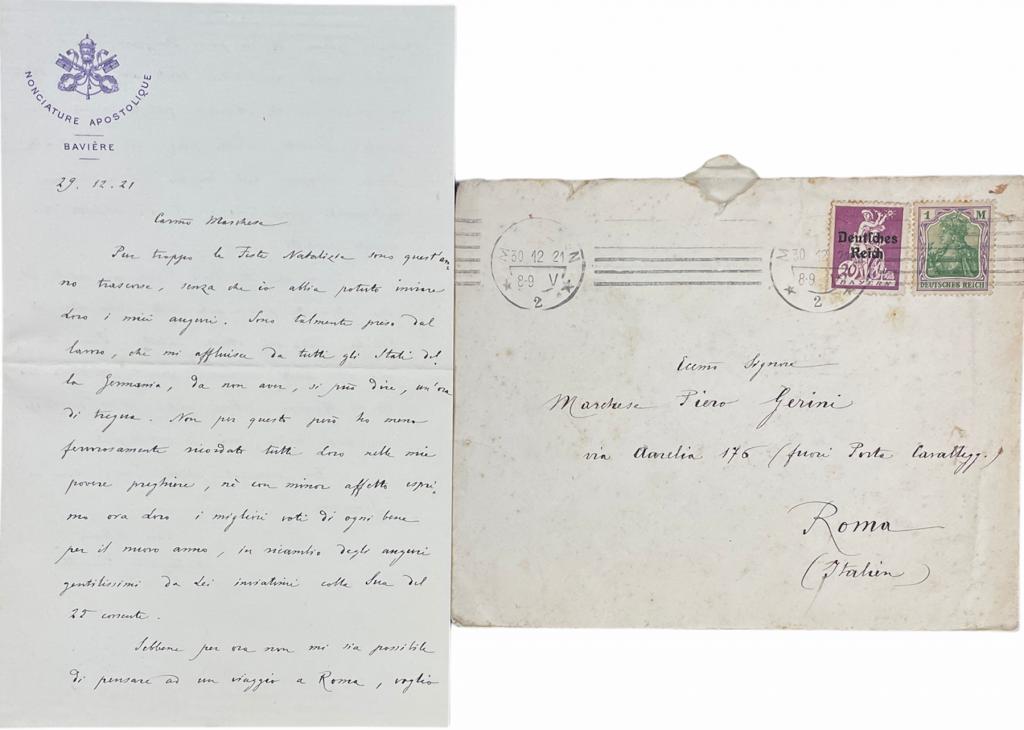 NONCIATURE APOSTOLIQUE
BAVIÈRE
29. 12. 21
Carmo Marchese
Pur troppo le Feste Natalizie sono quest'an-
no trascorse, senza che io abbia potuto inviare
Loro i miei auguri. Sono talmente preso dal
lavoro, che mi affluisce da tutti gli Stati del-
la Germania, da non aver, si può dire, un'ora
di tregua. Non per questo però ho meno
fervorosamente ricordato tutti Loro nelle mie
povere preghiere, nè con minor affetto espri-
mo ora Loro i migliori voti di ogni bene
per il nuovo anno, in ricambio degli auguri
gentilissimi da Lei inviatimi colla Sua del
25 corrente.
Sebbene per ora non mi sia possibile
di pensare ad un viaggio a Roma, voglio
30 12 21
8-9 V
2
30 12
8-9
2
Deutsches
Reich
BAYERN
1 M
DEUTSCHES REICH
Eccmo Signore
Marchese Piero Gerini
via Aurelia 176 (fuori Porta Cavallegg.)
Roma
(Italien)